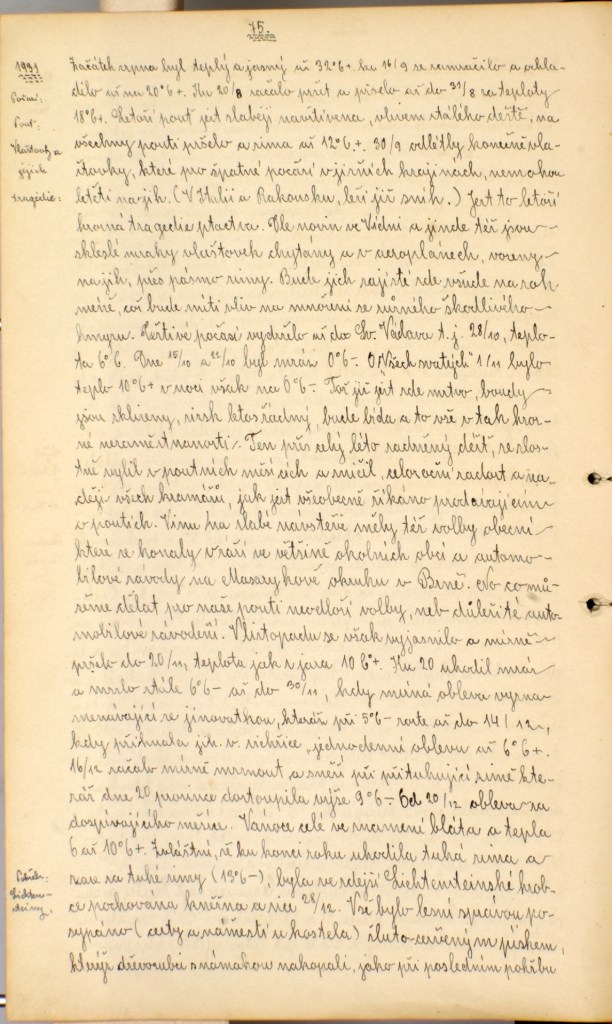 75.
1931
Začátek srpna byl teplý a jasný až 32°C+. ku 16/9 se zamračilo a ochla-
dilo až na 20°C+. Ku 20/8 začalo pršet a pršelo až do 31/8 za teploty
Počasí:
18°C+. Letoší pouť jest slaběji navštívena, vlivem stálého deště, na
Pouť:
všechny pouti pršelo a zima až 12°C+. 30/9 odlétly konečně vla-
Vlaštovky a
štovky, které pro špatné počasí v jižních krajinách, nemohou
jejich
letěti na jih. (V Italii a Rakousku, leží již sníh.) Jest to letoší
tragedie:
hrozná tragedie ptactva. Dle novin ve Vídni a jinde též jsou
skleslé mraky vlaštovek chytány a v aeroplánech, vozeny
na jih, přes pásmo zimy. Bude jich zajisté zde všude na rok
méně, což bude míti vliv na množení se různého škodlivého
hmyzu. Deštivé počasí vydrželo až do Sv. Václava t. j. 28/10, teplo-
ta 6°C. Dne 15/10 a 22/10 byl mráz 0°C-. O „Všech svatých" 1/11 bylo
teplo 10°C+ v noci však na 0°C-. Též již jest zde mrtvo, boudy
jsou sklizeny, zisk letos žádný, bude bída a to vše v tak hroz-
né nezaměstnanosti. Ten přes celý léto zadržený déšť, se zlos-
tně vylil v poutních měsících a zničil, celoroční radost a na-
ději všech kramářů, jak jest všeobecně říkáno prodávajícím
v poutích. Vinu na slabé návštěvě měly též volby obecní
které se konaly v září ve většině okolních obcí a automo-
bilové závody na Masarykově okruhu v Brně. No co mů-
žeme dělat pro naše pouti neodloží volby, neb důležité auto-
mobilové závodění. V listopadu se však vyjasnilo a mírně
pršelo do 20/11, teplota jak z jara 10°C+. Ku 20 uhodil mráz
a mrzlo stále 6°C- až do 30/11, kdy mírná obleva vyzna-
menávající se jinovatkou, kteráž při 5°C- roste až do 14/12,
kdy přihnala jih. v. vichřice, jednodenní oblevu až 6°C+.
16/12 začalo mírně mrznout a sněží při přituhující zimě kte-
ráž dne 20 prosince dostoupila výše 9°C-. Od 20/12 obleva za
dospívajícího měsíce. Vánoce celé ve znamení bláta a tepla
6 až 10°C+. Zvláštní, že ku konci roku uhodila tuhá zima a
zase za tuhé zimy (13°C-), byla ve zdejší Lichtensteinské hrob-
Pohřeb:
Lichten-
steiny.
ce pochována kněžna a sice 28/12. Vše bylo lesní správou po-
sypáno (cesty a náměstí u kostela) žluto-červeným pískem,
kterýž dřevorubci s námahou nakopali, jako při posledním pohřbu